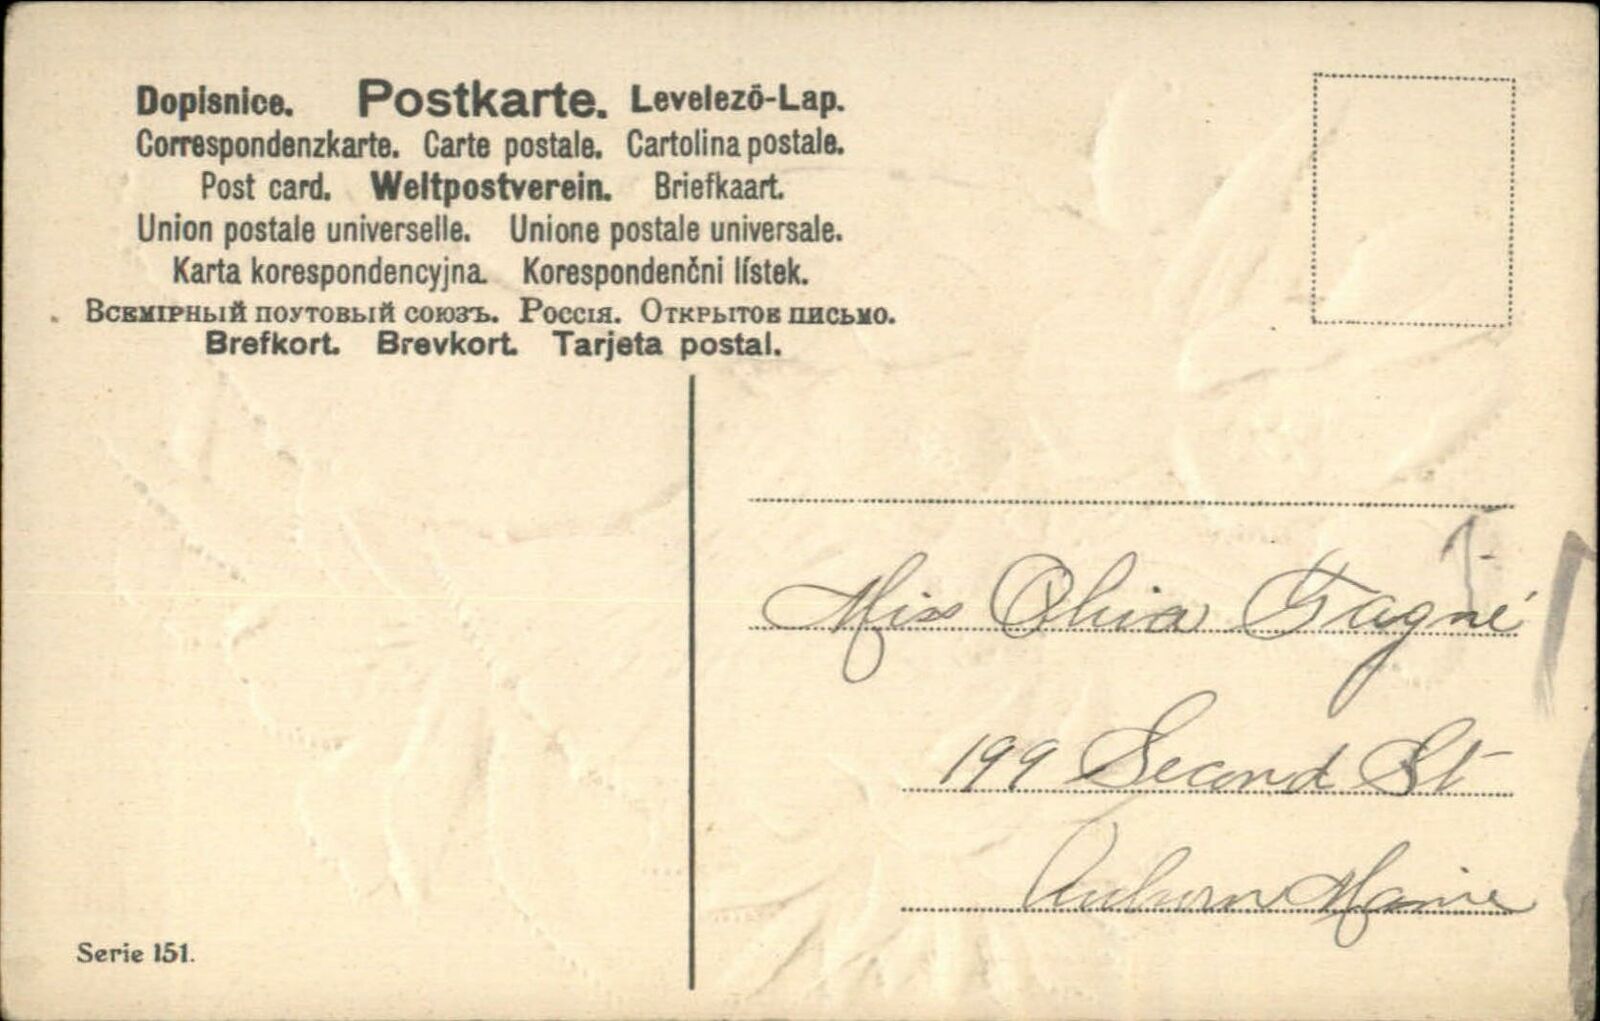 Dopisnice. Postkarte. Levelező-Lap.
Correspondenzkarte. Carte postale. Cartolina postale.
Post card. Weltpostverein. Briefkaart.
Union postale universelle. Unione postale universale.
Karta korespondencyjna. Korespondenčni lístek.
Всемірный поутовый союзъ. Россія. Открытов письмо.
Brefkort. Brevkort. Tarjeta postal.
Miss Gagné
199 Second St
Auburn Maine
Serie 151.